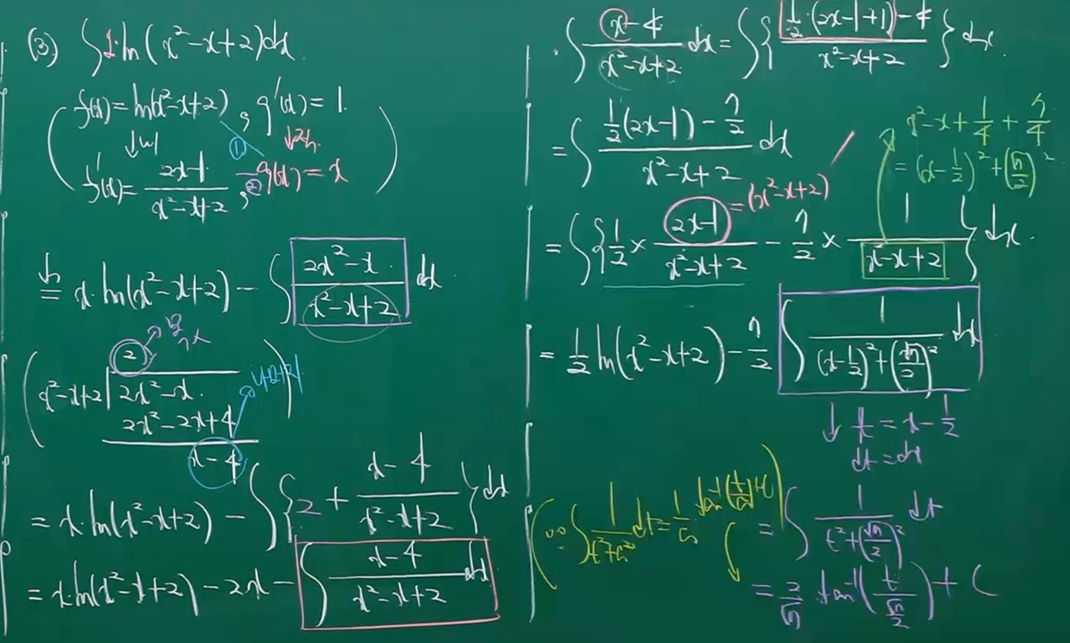 (3) ∫1·ln(x²-x+2)dx
f(x)=ln(x²-x+2), g'(x)=1.
↓미 ① ↓적
f'(x)=(2x-1)/(x²-x+2), ② g(x)=x
준식= x·ln(x²-x+2) - ∫ (2x²-x)/(x²-x+2) dx
2 → 몫
x²-x+2 | 2x²-x
2x²-2x+4
x-4 → 나머지
= x·ln(x²-x+2) - ∫{2 + (x-4)/(x²-x+2)}dx
= x·ln(x²-x+2) - 2x - ∫ (x-4)/(x²-x+2) dx
· ∫ (x-4)/(x²-x+2) dx = ∫{(1/2·(2x-1+1)-4)/(x²-x+2)}dx
= ∫ (1/2(2x-1) - 7/2)/(x²-x+2) dx
x²-x+1/4+7/4
= (x-1/2)²+(√7/2)²
= ∫{1/2 × (2x-1)/(x²-x+2) - 7/2 × 1/(x-x+2)}dx
= (x²-x+2)'
= 1/2 ln(x²-x+2) - 7/2 ∫ 1/((x-1/2)²+(√7/2)²) dx
↓ t = x-1/2
dt=dx
(∵ ∫ 1/(t²+a²) dt = 1/a tan⁻¹(t/a)+C)
= ∫ 1/(t²+(√7/2)²) dt
= 2/√7 tan⁻¹(t/(√7/2)) + C